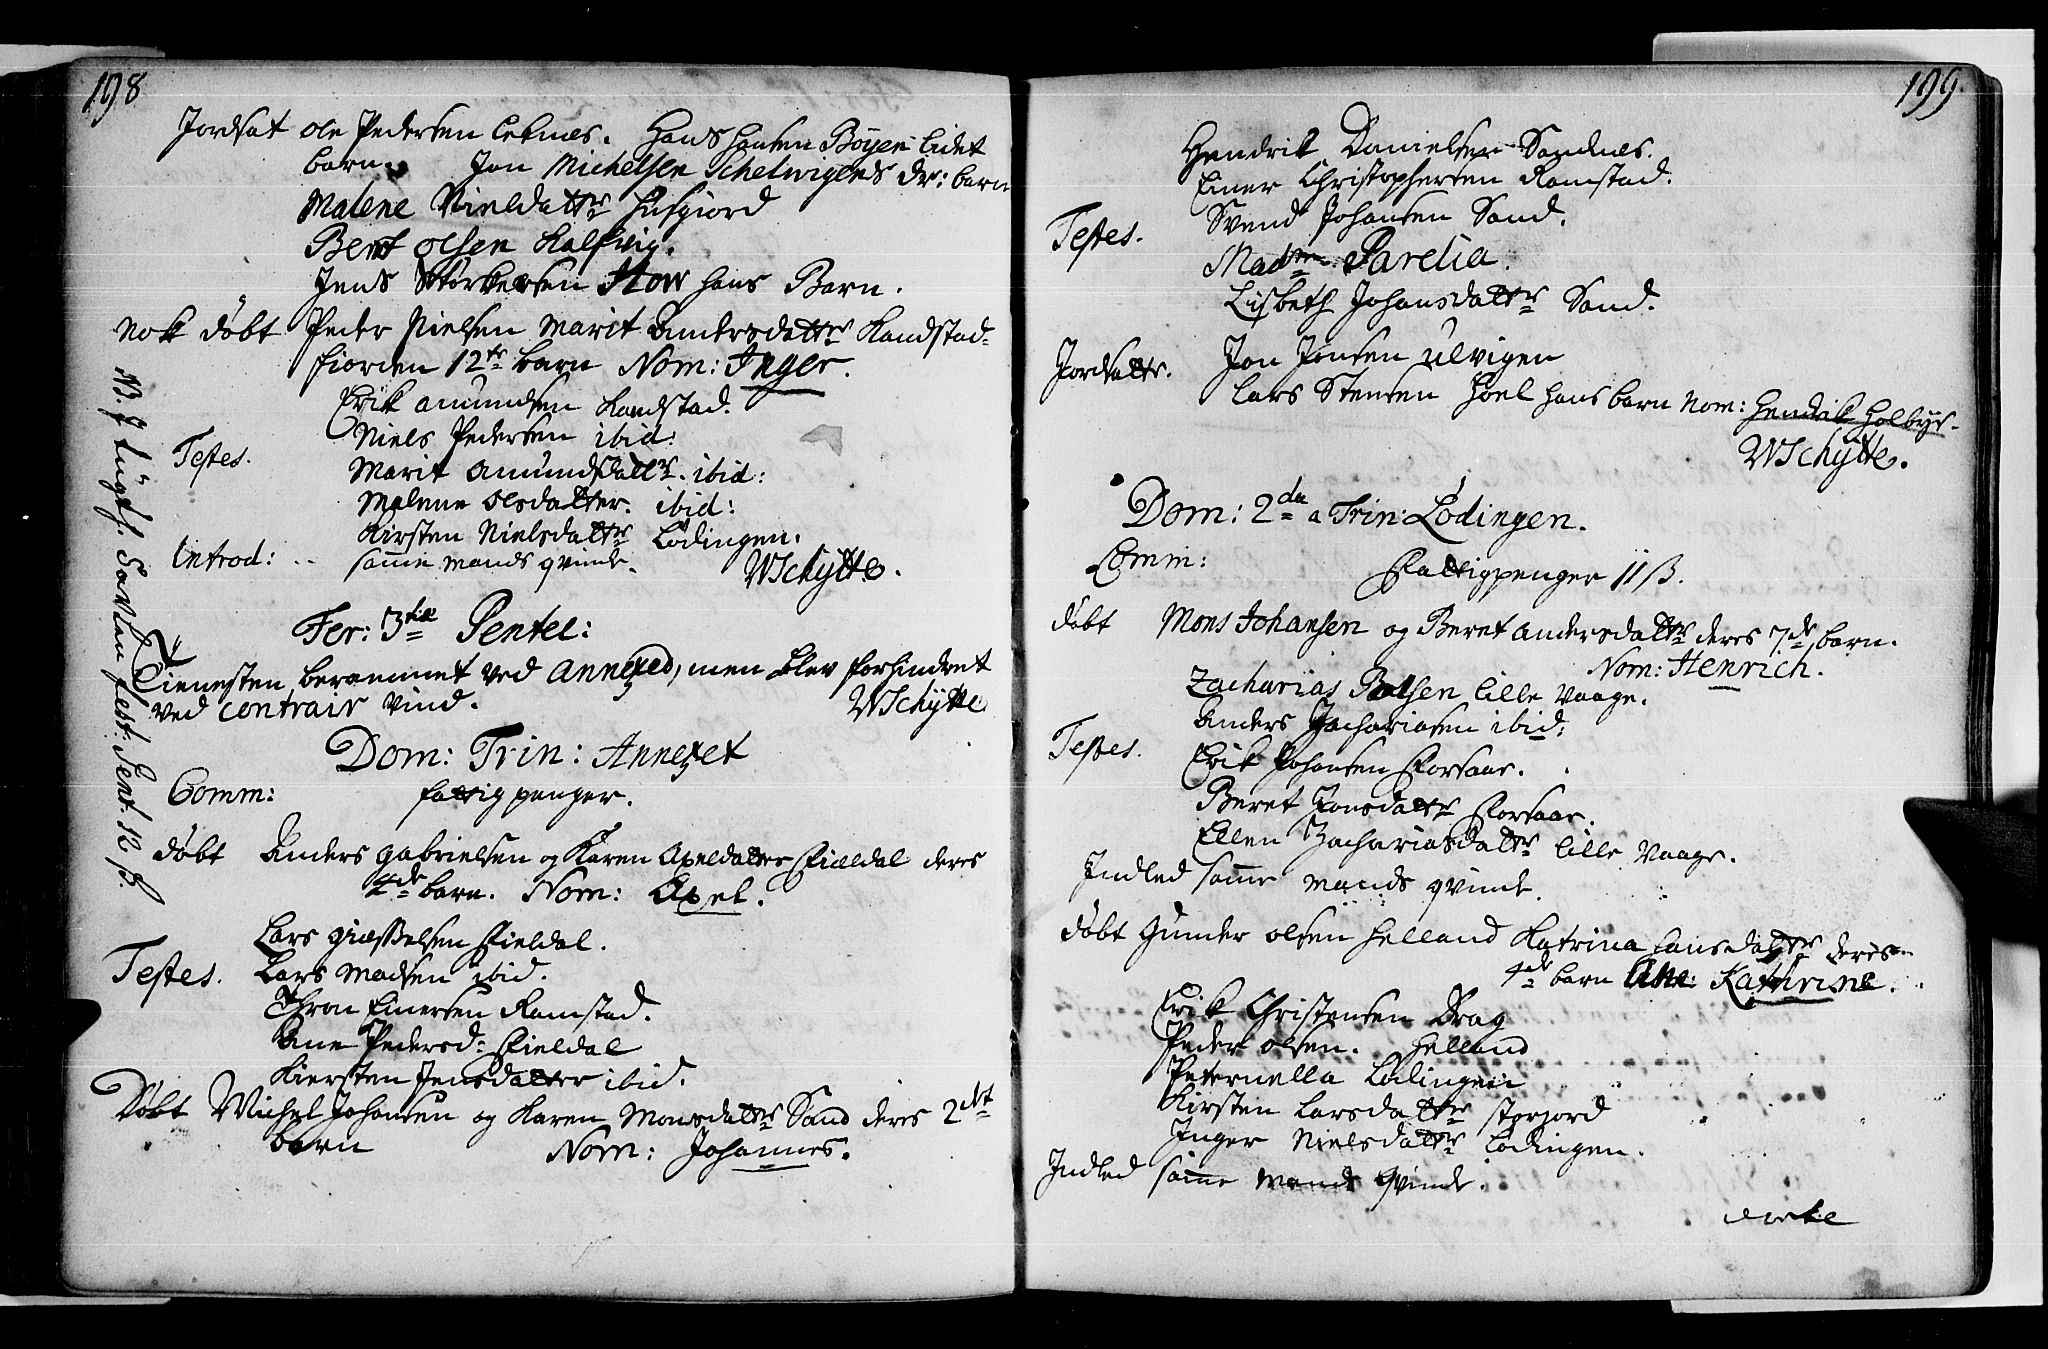 198
Jordsat Ole Pedersen Leknes. Hans Hansen Böyen lidet
barn. Jon Michelsen Schelwigens dr: barn
Malene Nielsdattr Husfiord
Bent Olsen Kalfvig.
Jens Störkersen How hans Barn.
Nok döbt Peder Nielsen Marit Andersdattr Kandstad-
fiorden 12te barn Nom: Inger.
Erik Amundsen Kandstad.
Niels Pedersen ibid:
Testes.
Marit Amundsdattr. ibid:
Malene Olsdatter. ibid:
Kirsten Nielsdattr Lödingen.
Introd: .. samme mands qvinde.
WSchytte.
Fer: 3tiæ Pentec:
Tienesten berammet ved Annexed, men blev forhindret
ved contrair vind.
WSchytte
Dom: Trin: Annexet
Comm: fattig penger.
döbt Anders Gabrielsen og Karen Axeldatter Fieldal deres
4de barn. Nom: Axel.
Lars Giæsselsen Fieldal.
Testes. Lars Madsen ibid.
Thron Einersen Ramstad.
Ane Pedersd: Fieldal
Kiersten Jensdatter ibid.
Döbt Michel Johansen og Karen Monsdattr Sand deres 2det
barn Nom: Johannes.
199.
Hendrik Danielsen Sandnes.
Einer Christophersen Ramstad.
Testes. Svend Johansen Sand.
Madme Parelia.
Lisbeth Johansdattr Sand.
Jordsatte. Jon Jonsen Ulvigen
Lars Stensen Hoel hans barn Nom: Hendrik Holbye.
WSchytte.
Dom: 2da a Trin: Lödingen.
Comm: Fattigpenger 11 ß.
döbt Mons Johansen og Beret Andersdattr deres 7de barn.
Nom: Henrich.
Zacharias Polsen Lille Vaage.
Anders Zachariasen ibid:
Testes. Erik Johansen Forsaae.
Beret Jonsdattr Forsaae.
Ellen Zachariasdattr Lille Vaage.
Indled samme mands qvinde.
döbt Gunder Olsen Helland Katrina Hansdattr deres
4de barn Ane: Kathrine.
Erik Christensen Drag
Peder Olsen. Helland
Peternella Lödingen
Kirsten Larsdattr Storjord
Inger Nielsdattr Lödingen.
Indled samme mands Qvinde.